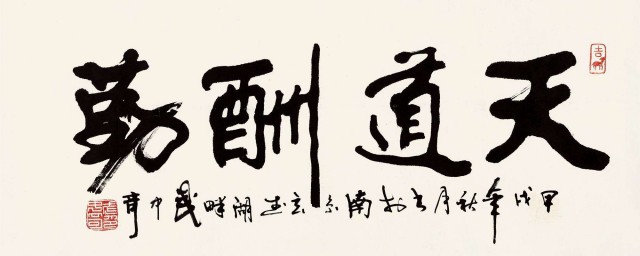 天道酬勤
甲戌年秋月书於南京玄武湖畔武中奇